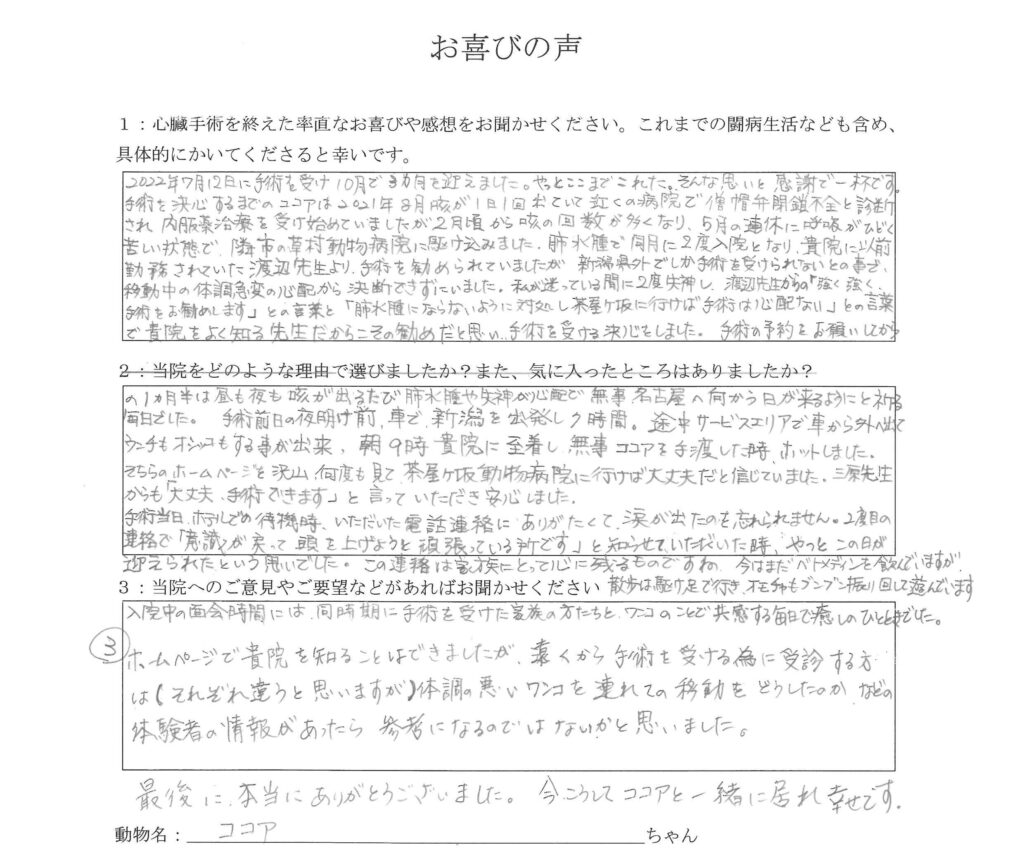 お喜びの声
１：心臓手術を終えた率直なお喜びや感想をお聞かせください。これまでの闘病生活なども含め、
具体的にかいてくださると幸いです。
2022年7月12日に手術を受け10月で3ヵ月を迎えました。やっとここまでこれた。そんな思いと感謝で一杯です。
手術を決心するまでのココアは2021年8月咳が1日1回出ていて近くの病院で僧帽弁閉鎖不全と診断
され内服薬治療を受け始めていましたが2月頃から咳の回数が多くなり、5月の連休に呼吸がひどく
苦しい状態で、隣市の草村動物病院に駆け込みました。肺水腫で同月に2度入院となり、貴院に以前
勤務されていた渡辺先生より、手術を勧められていましたが 新潟県外でしか手術を受けられないとの事で、
移動中の体調急変の心配から決断できずにいました。私が迷っている間に2度失神し、渡辺先生からの「強く強く、
手術をお勧めします」との言葉と「肺水腫にならないように対処し茶屋ヶ坂に行けば手術は心配ない」との言葉
で貴院をよく知る先生だからこその勧めだと思い、手術を受ける決心をしました。 手術の予約をお願いしてから
２：当院をどのような理由で選びましたか？また、気に入ったところはありましたか？
の1ヵ月半は昼も夜も咳が出るたび肺水腫や失神が心配で無事、名古屋へ向かう日が来るようにと祈る
毎日でした。 手術前日の夜明け前、車で、新潟を出発し7時間。途中サービスエリアで車から外へ出て
ウンチもオシッコもする事が出来、朝9時貴院に到着し、無事ココアを手渡した時、ホットしました。
そちらのホームページを沢山、何度も見て、茶屋ヶ坂動物病院に行けば大丈夫だと信じていました。三原先生
からも「大丈夫、手術できます」と言っていただき安心しました。
手術当日、ホテルでの待機時、いただいた電話連絡にありがたくて、涙が出たのを忘れられません。2度目の
連絡で「意識が戻って頭を上げようと頑張っている所です」と知らせていただいた時、やっとこの日が
迎えられたという思いでした。この連絡は家族にとって心に残るものですね。今はまだベトメディンを飲んでいますが
３：当院へのご意見やご要望などがあればお聞かせください 散歩は駆け足で行き、オモチャもブンブン振り回して遊んでいます
入院中の面会時間には、同時期に手術を受けた家族の方たちと、ワンコのことで共感する毎日で癒しのひとときでした。
③ ホームページで貴院を知ることはできましたが、遠くから手術を受ける為に受診する方
は（それぞれ違うと思いますが）体調の悪いワンコを連れての移動をどうしたのかなどの
体験者の情報があったら参考になるのではないかと思いました。
最後に、本当にありがとうございました。今こうしてココアと一緒に居れ幸せです。
動物名：ココア ちゃん